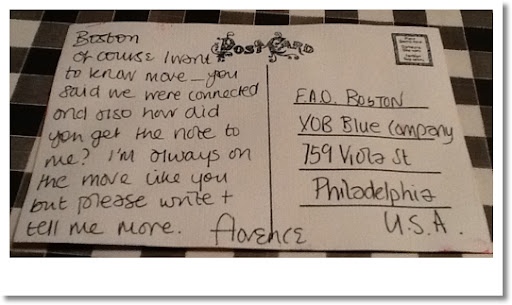 Boston
Of course I want
to know more – you
said we were connected
and also how did
you get the note to
me? I'm always on
the move like you
but please write +
tell me more.
Florence
POST CARD
F.A.O. BOSTON
YOB Blue Company
759 Viola St
Philadelphia
U.S.A.